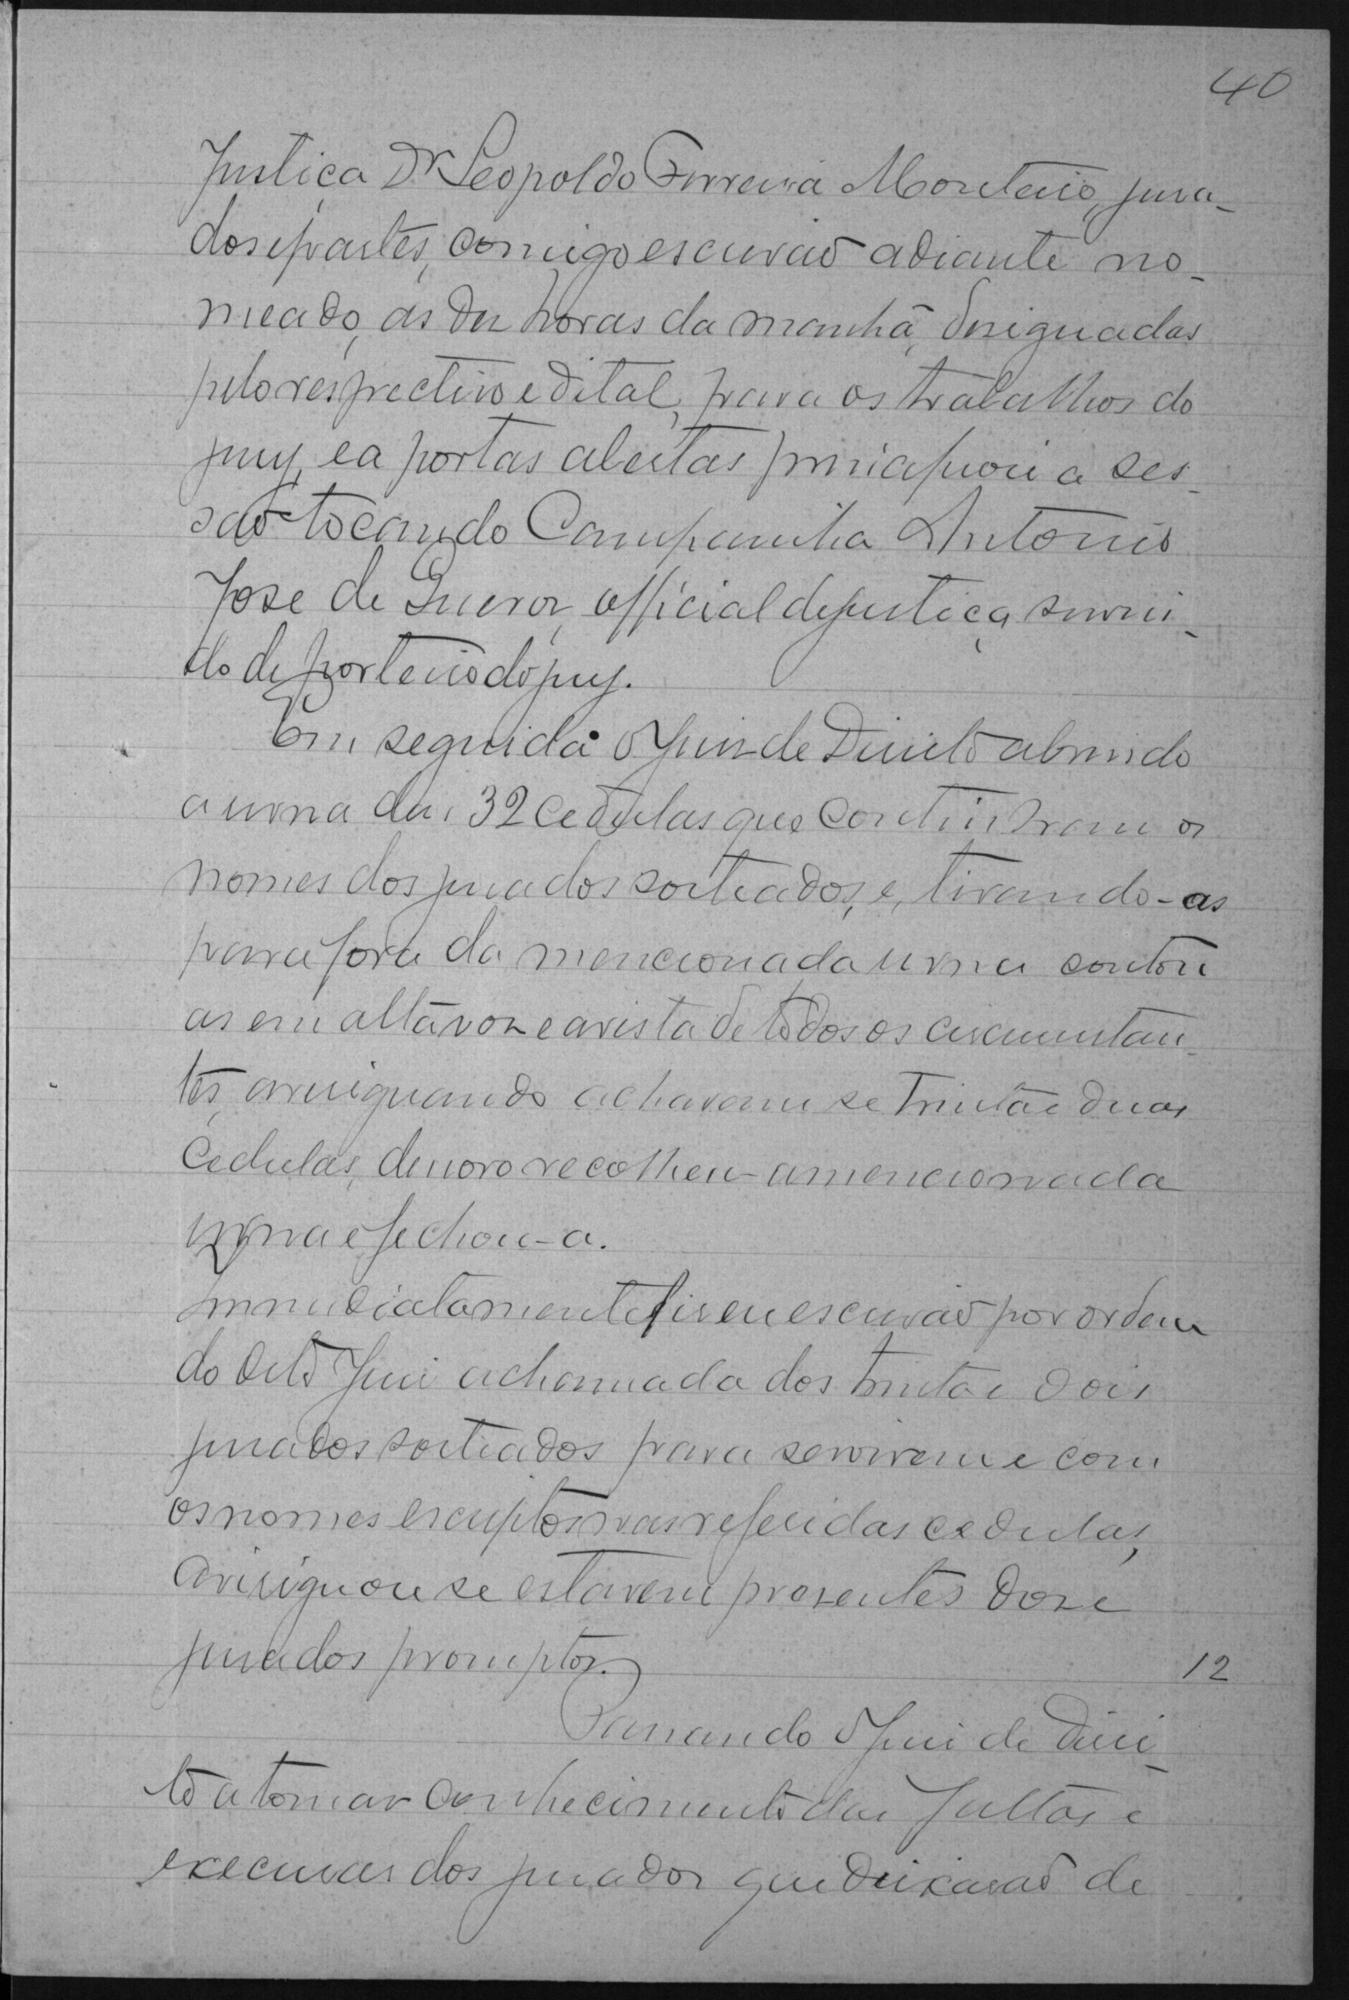 40
Justiça Dr Leopoldo Ferreira Monteiro, jura-
dos e partes, comigo escrivão adiante no-
meado, ás dez horas da manhã, designadas
pelo respectivo edital, para os trabalhos do
jury, e a portas abertas principiou a ses-
são tocando Campainha Antonio
Jose de Queroz, official de justiça servin-
do de porteiro do jury.
Em seguida o Juiz de Direito abrindo
a urna das 32 cedulas que continham os
nomes dos jurados sorteados, e, tirando-as
para fora da mencionada urna contou
as em alta voz e a vista de todos os circumstan-
tes, averiguando acharem se trinta e duas
cedulas, de novo recolheu-a mencionada
urna e fechou-a.
Immediatamente fis eu escrivão por ordem
do dito Juiz a chamada dos trinta e dois
jurados sorteados para servirem e com
os nomes escriptos nas referidas cedulas,
averiguou se estavem presentes doze
jurados promptos.
12
Passando o Juiz de Direi-
to a tomar conhecimento das faltas e
excusas dos jurados que deixarão de